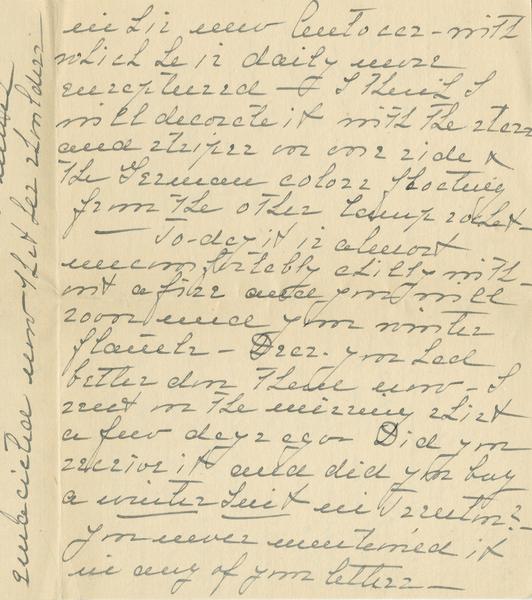 in his new Gutocar - with
which he is daily more
enraptured - & I think I
will decorate it with the stars
and stripes on one side &
the German colors floating
from the other lamp socket -
To-day it is almost
uncomfortably chilly with-
out a fire and you will
soon need your winter
flannels - Dear. you had
better don them now - I
sent on the missing shirt
a few days ago. Did you
receive it and did you buy
a winter suit in Trenton?
You never mentioned it
in any of your letters -
emaciated now that her shoulder